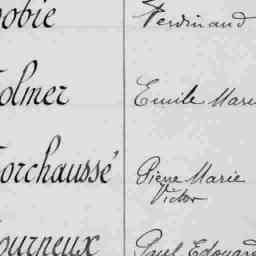 obie Ferdinand
olmer Emile Marie
orchaussé Pierre Marie
Victor
ourneux Paul Edouard